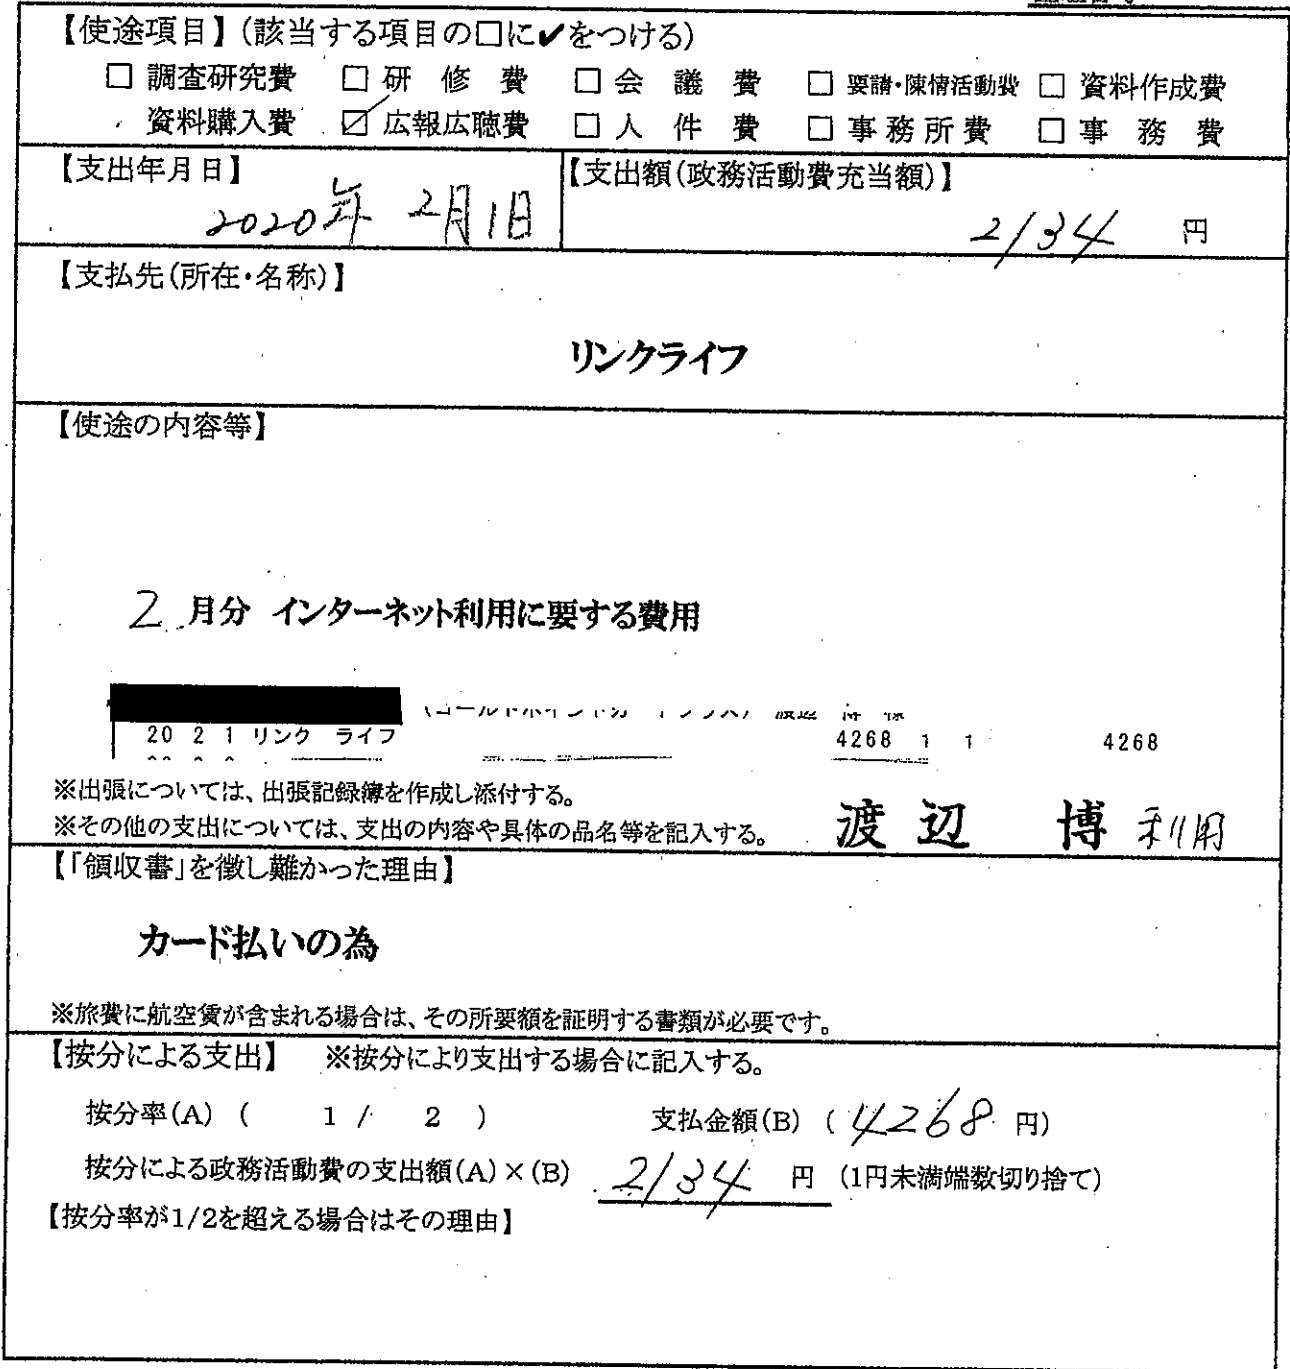 【使途項目】(該当する項目の□に✔をつける)
□ 調査研究費 □ 研 修 費 □ 会 議 費 □ 要請・陳情活動費 □ 資料作成費
資料購入費 ☑ 広報広聴費 □ 人 件 費 □ 事務所費 □ 事 務 費
【支出年月日】 【支出額(政務活動費充当額)】
2020年 2月1日 2134 円
【支払先(所在・名称)】
リンクライフ
【使途の内容等】
2 月分 インターネット利用に要する費用
20 2 1 リンク ライフ 4268 1 1 4268
※出張については、出張記録簿を作成し添付する。
※その他の支出については、支出の内容や具体の品名等を記入する。 渡辺 博 利用
【「領収書」を徴し難かった理由】
カード払いの為
※旅費に航空賃が含まれる場合は、その所要額を証明する書類が必要です。
【按分による支出】 ※按分により支出する場合に記入する。
按分率(A) ( 1 / 2 ) 支払金額(B) ( 4268 円)
按分による政務活動費の支出額(A)×(B) 2134 円 (1円未満端数切り捨て)
【按分率が1/2を超える場合はその理由】